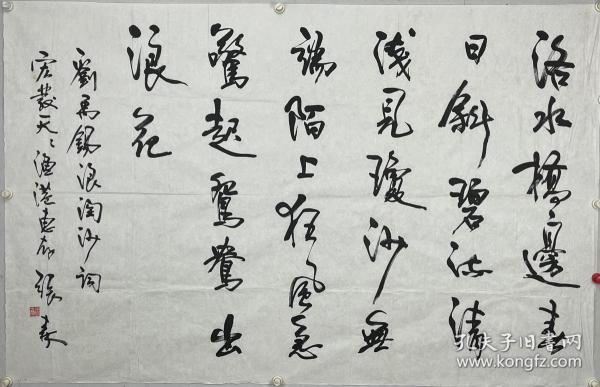 洛水橋邊春
日斜碧流清
淺見瓊沙無
端陌上狂風急
驚起鴛鴦出
浪花
劉禹錫浪淘沙詞
天〻漁港惠存 張森
孔夫子旧书网
www.kongfz.com